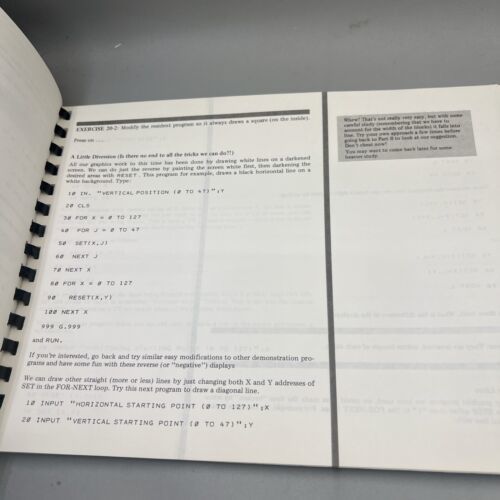 EXERCISE 20-2: Modify the resident program so it always draws a square (on the inside).
Press on
A Little Diversion (Is there no end to all the tricks we can do?!)
All our graphics work to this time has been done by drawing white lines on a darkened
screen. We can do just the reverse by painting the screen white first, then darkening the
desired areas with RESET. This program for example, draws a black horizontal line on a
white background. Type:
10 IN. "VERTICAL POSITION (0 TO 47)";Y
20 CLS
30 FOR X = 0 TO 127
40 FOR J = 0 TO 47
50 SET(X,J)
60 NEXT J
70 NEXT X
80 FOR X = 0 TO 127
90 RESET(X,Y)
100 NEXT X
999 G.999
and RUN.
If you're interested, go back and try similar easy modifications to other demonstration pro-
grams and have some fun with these reverse (or "negative") displays
We can draw other straight (more or less) lines by just changing both X and Y addresses of
SET in the FOR-NEXT loop. Try this next program to draw a diagonal line.
10 INPUT "HORIZONTAL STARTING POINT (0 TO 127)";X
20 INPUT "VERTICAL STARTING POINT (0 TO 47)";Y
Whew! That's not really very easy, but with some
careful study (remembering that we have to
account for the width of the blocks) it falls into
line. Try your own approach a few times before
going back to Part B to look at our suggestion.
Don't cheat now!
You may want to come back later for some
heavier study.